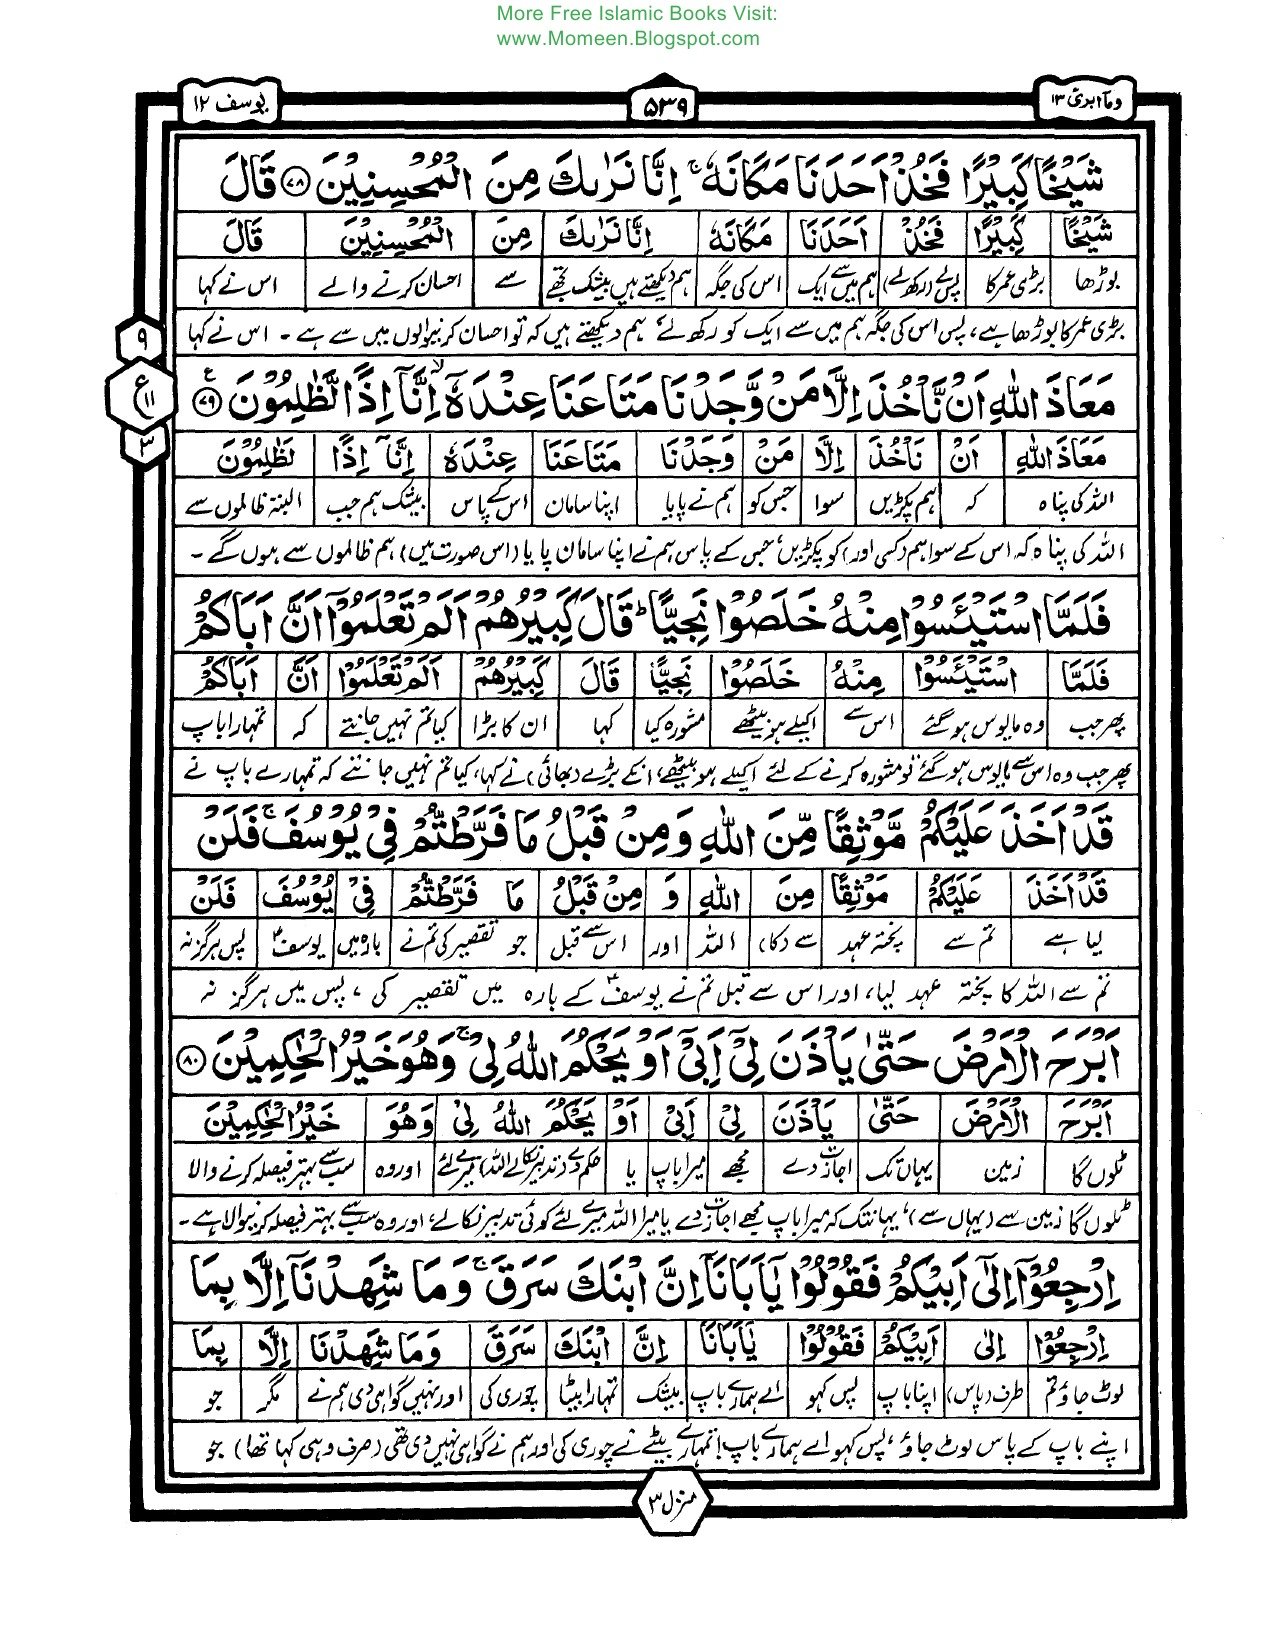 More Free Islamic Books Visit:
www.Momeen.Blogspot.com
وما ابرئ ۱۳
۵۳۹
یوسف ۱۲
شَيْخًا كَبِيْرًا فَخُذْ اَحَدَنَا مَكَانَهٗ ۚ اِنَّا نَرٰىكَ مِنَ الْمُحْسِنِيْنَ ﴿۷۸﴾ قَالَ
شَيْخًا كَبِيْرًا فَخُذْ اَحَدَنَا مَكَانَهٗ اِنَّا نَرٰىكَ مِنَ الْمُحْسِنِيْنَ قَالَ
بوڑھا بڑی عمر کا پس لے (رکھ لے) ہم میں سے ایک اس کی جگہ ہم دیکھتے ہیں بیشک تجھے سے احسان کرنے والے اس نے کہا
بڑی عمر کا بوڑھا ہے، پس اس کی جگہ ہم میں سے ایک کو رکھ لے، ہم دیکھتے ہیں کہ تو احسان کرنیوالوں میں سے ہے ۔ اس نے کہا
۹
ع
۱۱
۳
مَعَاذَ اللّٰهِ اَنْ نَّاْخُذَ اِلَّا مَنْ وَّجَدْنَا مَتَاعَنَا عِنْدَهٗٓ ۙ اِنَّآ اِذًا لَّظٰلِمُوْنَ ﴿۷۹﴾ ع
مَعَاذَ اللّٰهِ اَنْ نَاْخُذَ اِلَّا مَنْ وَجَدْنَا مَتَاعَنَا عِنْدَهٗ اِنَّآ اِذًا لَظٰلِمُوْنَ
اللہ کی پناہ کہ ہم پکڑیں سوا جس کو ہم نے پایا اپنا سامان اس کے پاس بیشک ہم جب البتہ ظالموں سے
اللہ کی پناہ کہ اس کے سوا ہم (کسی اور) کو پکڑیں، جس کے پاس ہم نے اپنا سامان پایا (اس صورت میں) ہم ظالموں سے ہوں گے ۔
فَلَمَّا اسْتَيْئَسُوْا مِنْهُ خَلَصُوْا نَجِيًّا ؕ قَالَ كَبِيْرُهُمْ اَلَمْ تَعْلَمُوْٓا اَنَّ اَبَاكُمْ
فَلَمَّا اسْتَيْئَسُوْا مِنْهُ خَلَصُوْا نَجِيًّا قَالَ كَبِيْرُهُمْ اَلَمْ تَعْلَمُوْٓا اَنَّ اَبَاكُمْ
پھر جب وہ مایوس ہو گئے اس سے اکیلے ہو بیٹھے مشورہ کیا کہا ان کا بڑا کیا تم نہیں جانتے کہ تمہارا باپ
پھر جب وہ اس سے مایوس ہو گئے تو مشورہ کرنے کے لئے اکیلے ہو بیٹھے، انکے بڑے (بھائی) نے کہا، کیا تم نہیں جانتے کہ تمہارے باپ نے
قَدْ اَخَذَ عَلَيْكُمْ مَّوْثِقًا مِّنَ اللّٰهِ وَمِنْ قَبْلُ مَا فَرَّطْتُّمْ فِيْ يُوْسُفَ ۚ فَلَنْ
قَدْ اَخَذَ عَلَيْكُمْ مَوْثِقًا مِنَ اللّٰهِ وَ مِنْ قَبْلُ مَا فَرَّطْتُمْ فِيْ يُوْسُفَ فَلَنْ
لیا ہے تم سے پختہ عہد سے (کا) اللہ اور اس سے قبل جو تقصیر کی تم نے بارہ میں یوسفؑ پس ہرگز نہ
تم سے اللہ کا پختہ عہد لیا، اور اس سے قبل تم نے یوسفؑ کے بارہ میں تقصیر کی، پس میں ہرگز نہ
اَبْرَحَ الْاَرْضَ حَتّٰى يَاْذَنَ لِيْٓ اَبِيْٓ اَوْ يَحْكُمَ اللّٰهُ لِيْ ۚ وَهُوَ خَيْرُ الْحٰكِمِيْنَ ﴿۸۰﴾
اَبْرَحَ الْاَرْضَ حَتّٰى يَاْذَنَ لِيْ اَبِيْ اَوْ يَحْكُمَ اللّٰهُ لِيْ وَهُوَ خَيْرُ الْحٰكِمِيْنَ
ٹلوں گا زمین یہاں تک اجازت دے مجھے میرا باپ یا حکم دے (تدبیر نکالے اللہ) میرے لئے اور وہ سب سے بہتر فیصلہ کرنے والا
ٹلوں گا زمین سے (یہاں سے)، یہانتک کہ میرا باپ مجھے اجازت دے یا میرا اللہ میرے لئے کوئی تدبیر نکالے، اور وہ سب سے بہتر فیصلہ کرنیوالا ہے ۔
اِرْجِعُوْٓا اِلٰٓى اَبِيْكُمْ فَقُوْلُوْا يٰٓاَبَانَآ اِنَّ ابْنَكَ سَرَقَ ۚ وَمَا شَهِدْنَآ اِلَّا بِمَا
اِرْجِعُوْٓا اِلٰى اَبِيْكُمْ فَقُوْلُوْا يٰٓاَبَانَا اِنَّ ابْنَكَ سَرَقَ وَمَا شَهِدْنَا اِلَّا بِمَا
لوٹ جاؤ تم طرف (پاس) اپنا باپ پس کہو اے ہمارے باپ بیشک تمہارا بیٹا چوری کی اور نہیں گواہی دی ہم نے مگر جو
اپنے باپ کے پاس لوٹ جاؤ، پس کہو اے ہمارے باپ! تمہارے بیٹے نے چوری کی اور ہم نے گواہی نہیں دی تھی (صرف وہی کہا تھا) جو
منزل ۳